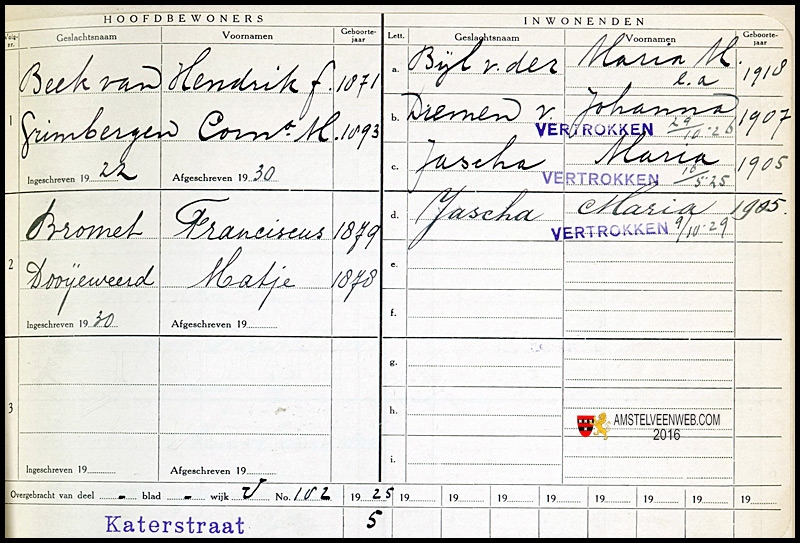 HOOFDBEWONERS
Volg-nr. Geslachtsnaam Voornamen Geboorte-jaar
1
Beek van Hendrik J. 1871
Grimbergen Corna. M. 1893
Ingeschreven 19 22 Afgeschreven 19 30
2
Bromet Franciscus 1879
Dooijeweerd Matje 1878
Ingeschreven 19 30 Afgeschreven 19
3
Ingeschreven 19 Afgeschreven 19
INWONENDEN
Lett. Geslachtsnaam Voornamen Geboorte-jaar
a. Bijl v. der Maria M. 1918
e.a
b. Diemen v. Johanna 1907
VERTROKKEN 29/10-26
c. Jascha Maria 1905
VERTROKKEN 16/5 25
d. Jascha Maria 1905.
VERTROKKEN 9/10-29
e.
f.
g.
h.
i.
AMSTELVEENWEB.COM
2016
Overgebracht van deel - blad - wijk V No. 182 19 25 19 19 19 19 19 19 19 19
Katerstraat 5